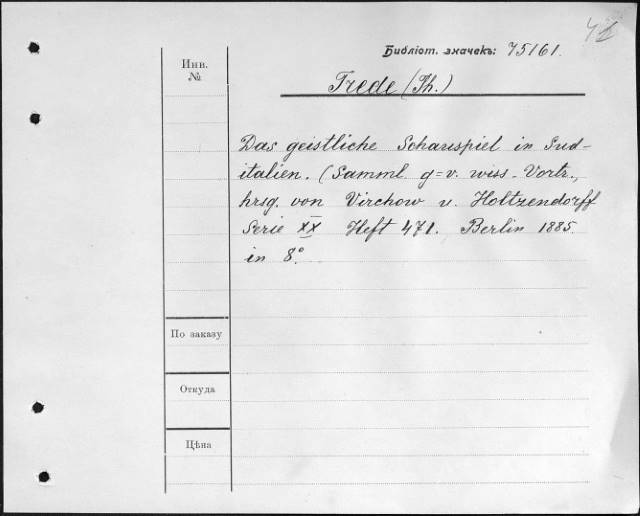 Библіот. значекъ: 75161.
Инв.
№
Trede (Th.)
Das geistliche Schauspiel in Süd-
italien. (Samml. g=v. wiss. Vortr.,
hrsg. von Virchow u. Holtzendorff
Serie XX Heft 471. Berlin 1885.
in 8°.
По заказу
Откуда
Цѣна